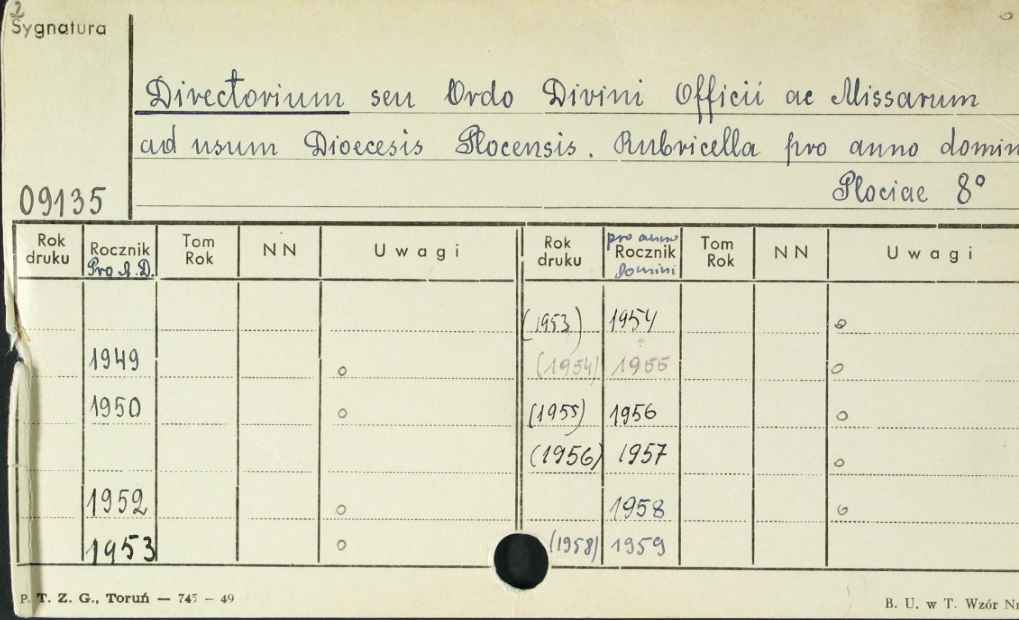 2
Sygnatura
Directorium seu Ordo Divini Officii ac Missarum
ad usum Dioecesis Plocensis. Rubricella pro anno domin
Plociae 8°
09135
Rok druku Rocznik Pro A.D. Tom Rok NN Uwagi Rok druku pro anno Rocznik domini Tom Rok NN Uwagi
(1953) 1954 o
1949 o (1954) 1955 o
1950 o (1955) 1956 o
(1956) 1957 o
1952 o 1958 o
1953 o (1958) 1959
P. T. Z. G., Toruń — 745 — 49
B. U. w T. Wzór Nr